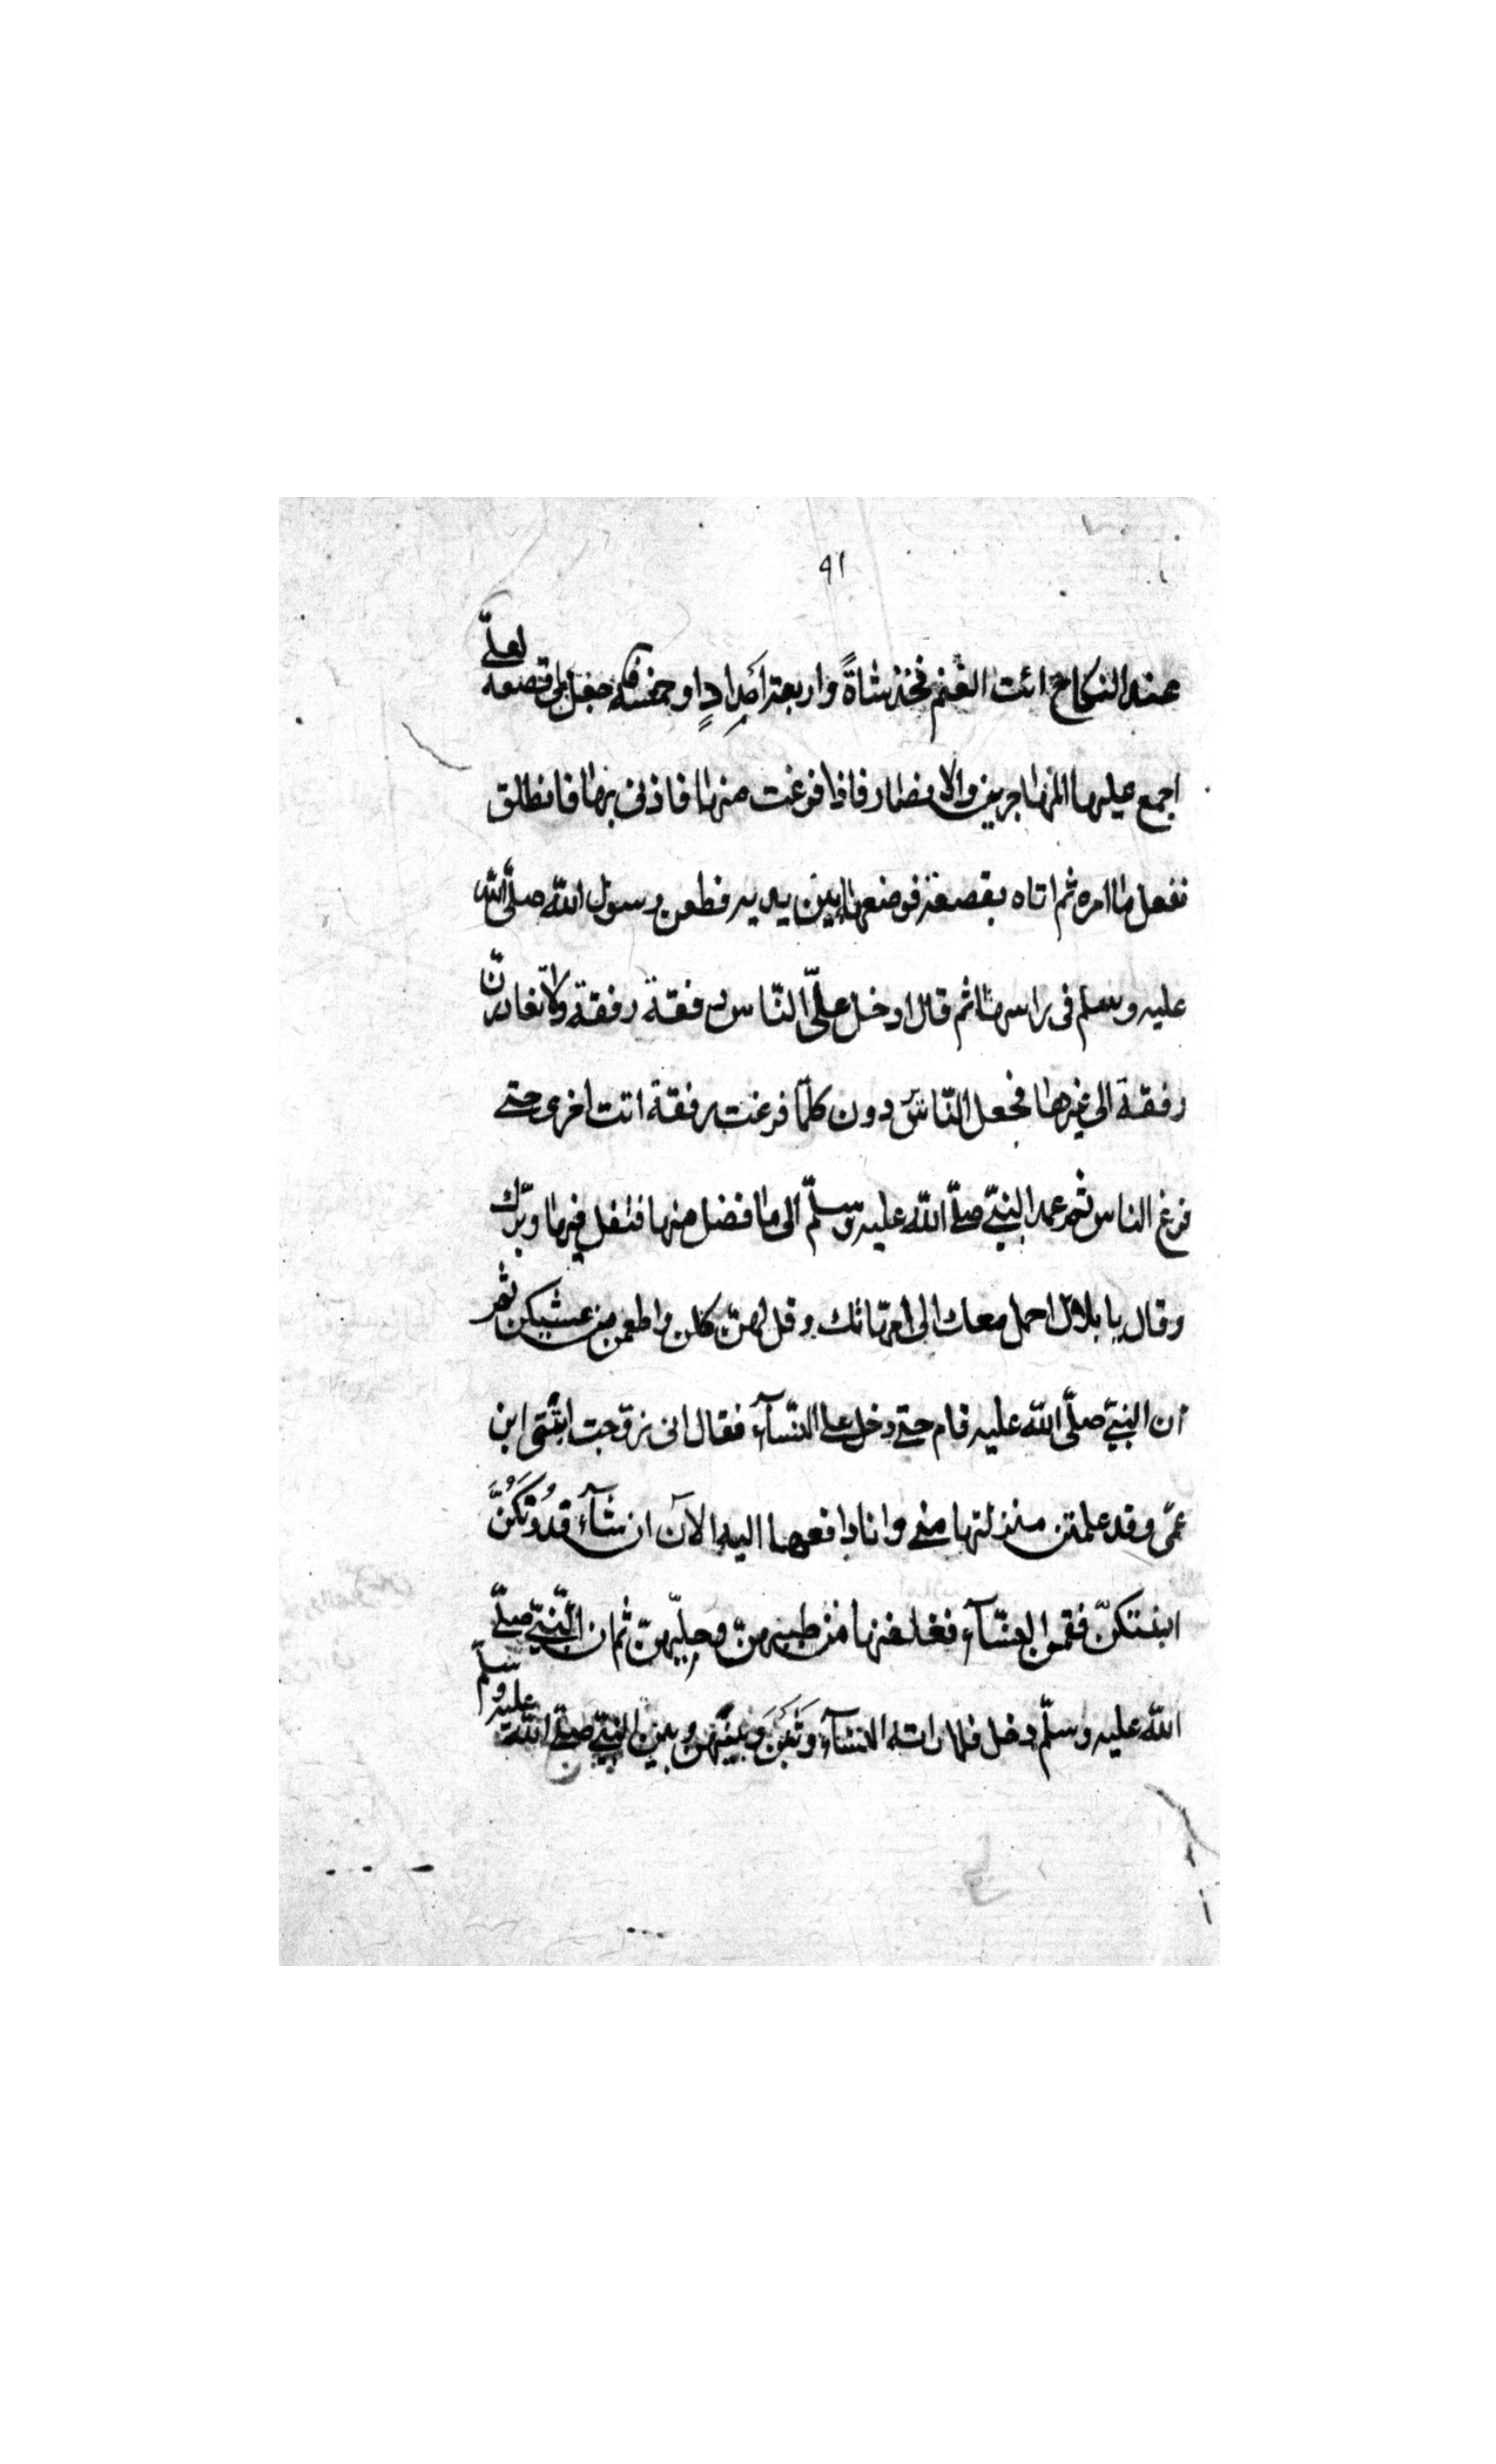 ٩١
عند النكاح ائت الغنم فخذ شاةً واربعة امدادٍ او خمسة فاجعل لى قصعة لعلّى
اجمع عليها المهاجرين والانصار فاذا فرغت منها فاذنى بها فانطلق
ففعل ما امره ثم اتاه بقصعة فوضعها بين يديه فطعن رسول الله صلّى الله
عليه وسلم فى راسها ثم قال ادخل علىّ النّاس رفقة رفقة ولا تغادرنّ
رفقة الى غيرها فجعل النّاس دون كلمّا فرغت رفقة اتت اخرى حتى
فرغ الناس ثم عمد النبىّ صلّى الله عليه وسلّم الى ما فضل منها فتفل فيها وبرّك
وقال يا بلال احمل معك الى امهّاتك وقل لهنّ كلن واطعمن من عشيكن ثم
ان النبىّ صلّى الله عليه قام حتى دخل على النّسآء فقال انى زوّجت ابنتى ابن
عمّى وقد علمتن منزلتها منى وانا دافعها اليه الآن ان شآء قدونكنّ
ابنتكنّ فقموا لعسّآء فغلفنها من طيبهنّ وحليّهنّ ثم ان النّبىّ صلّى
الله عليه وسلّم دخل فلما راته النسآء وثبن وبينهن وبين النبىّ صلّى الله عليه وسلّم